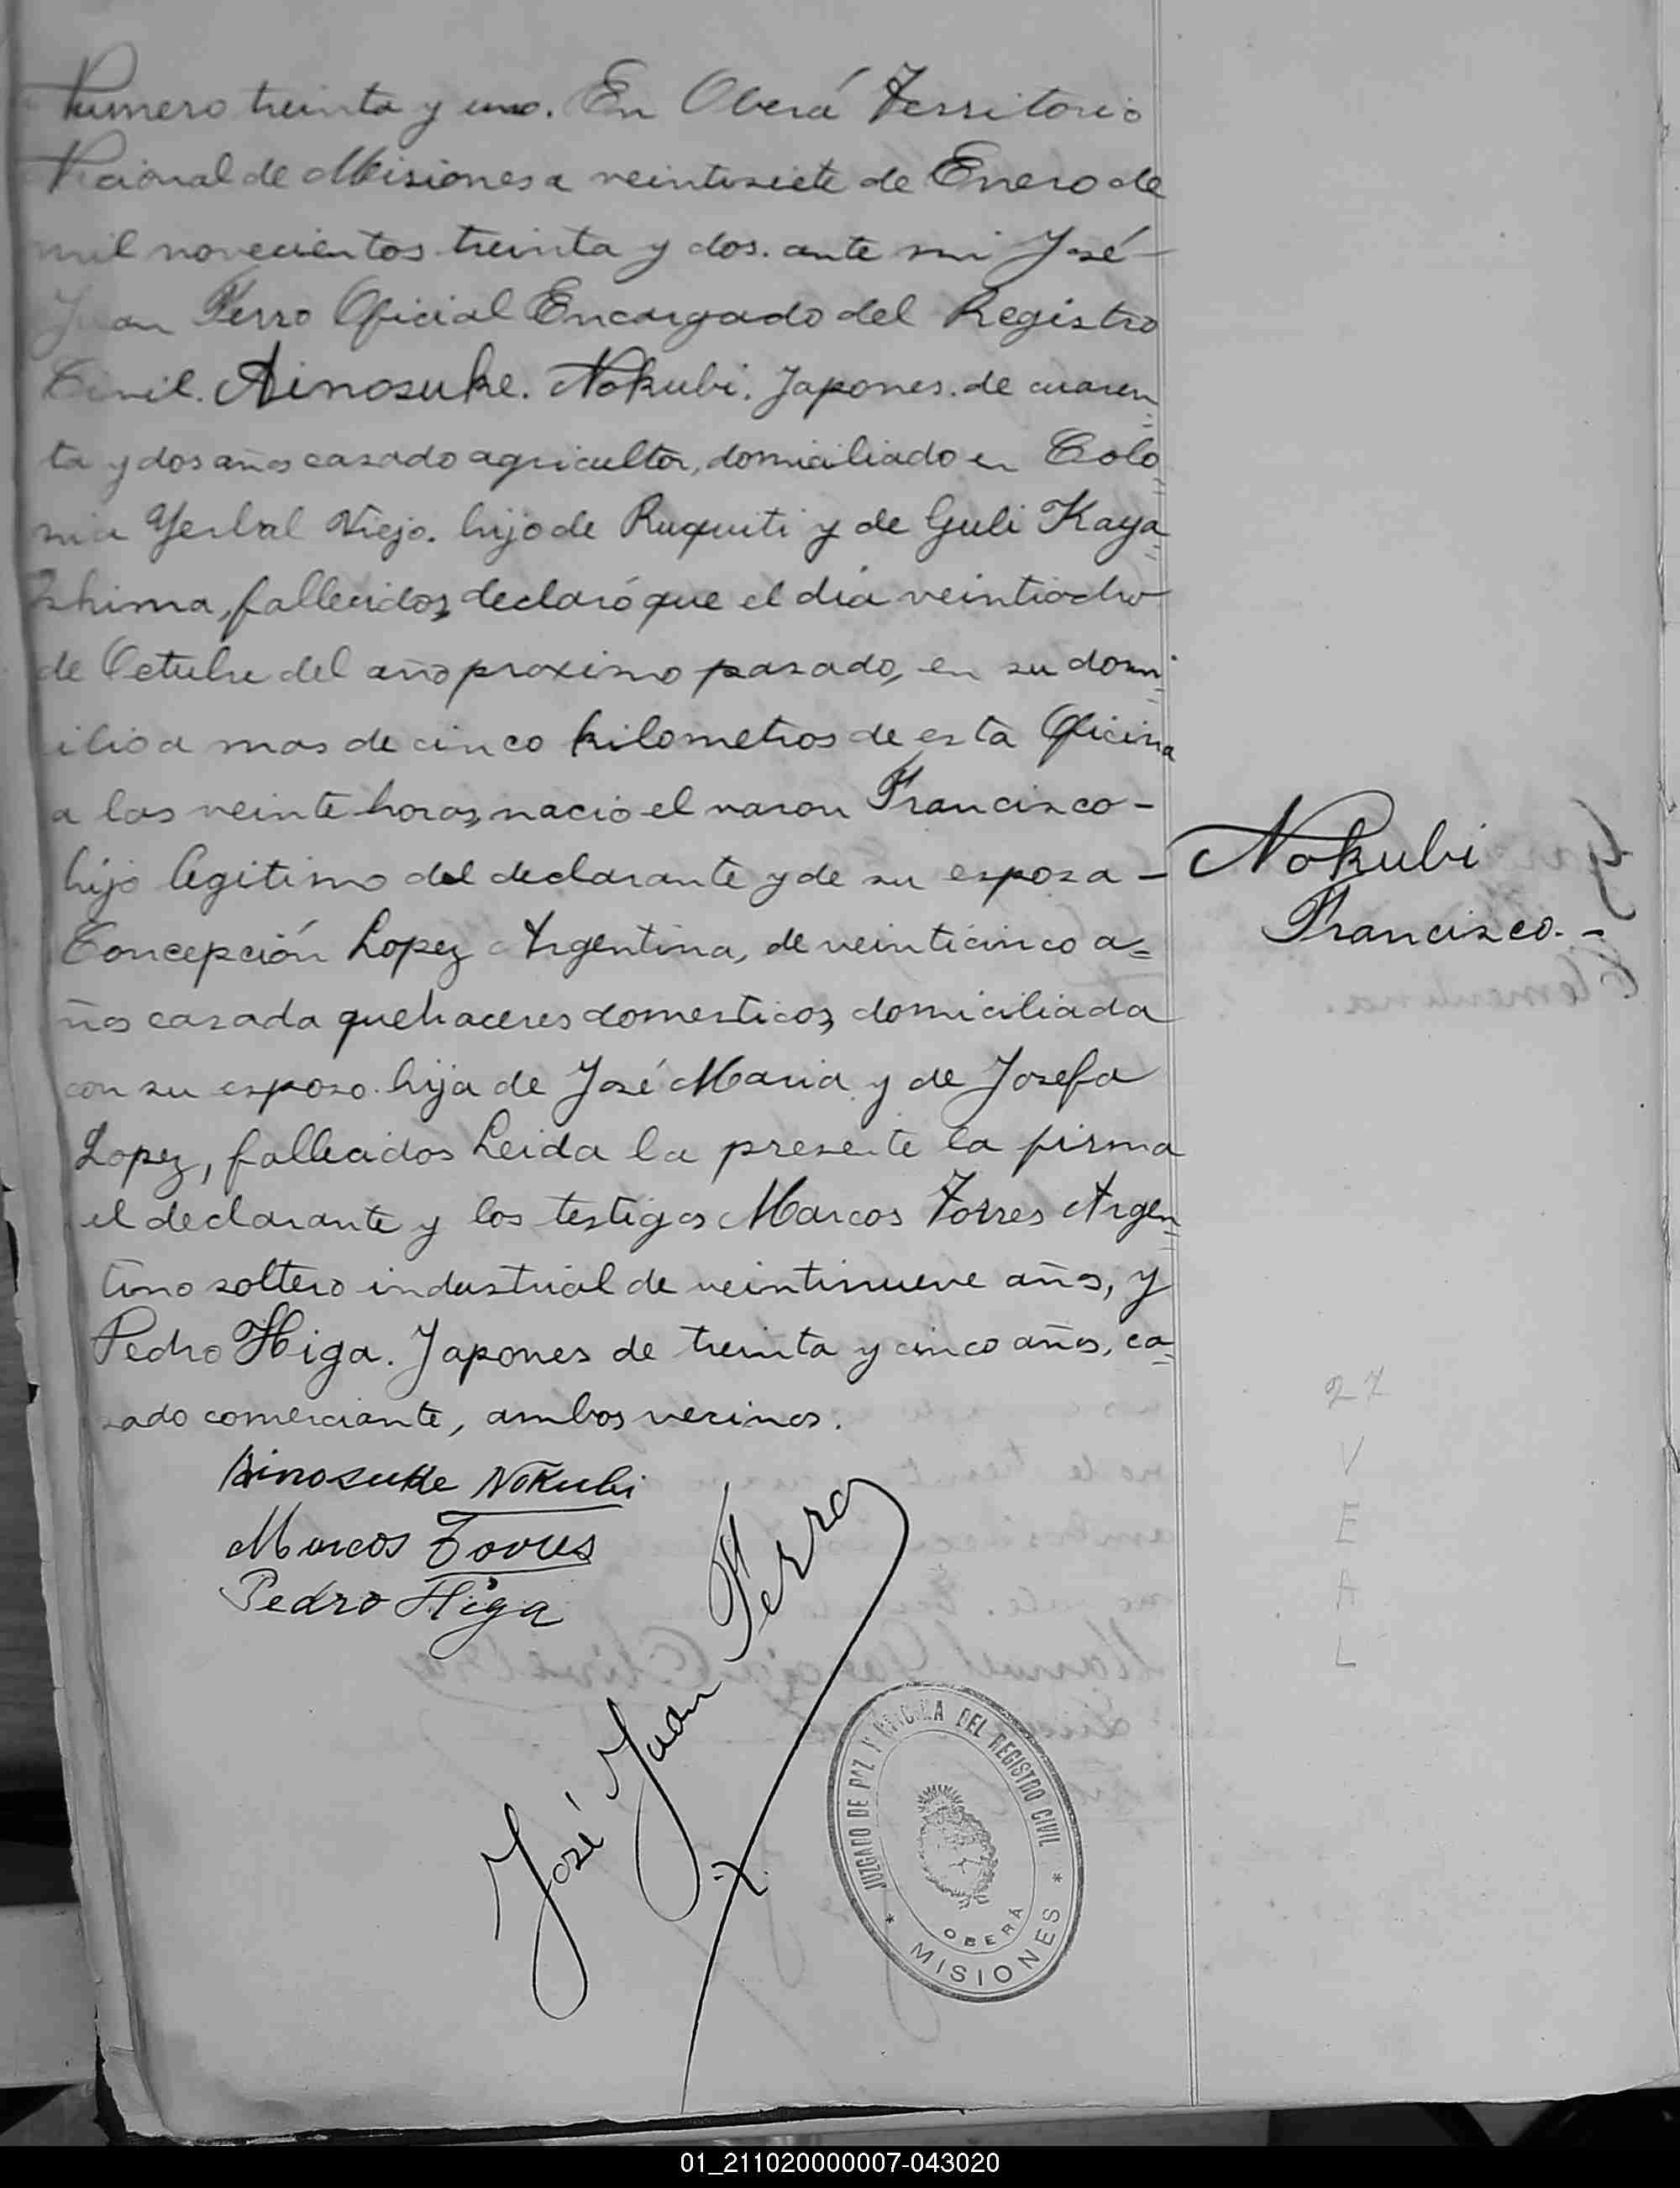 Numero treinta y uno. En Oberá Territorio
Nacional de Misiones a veintisiete de Enero de
mil novecientos treinta y dos. ante mi José
Juan Ferro Oficial Encargado del Registro
Civil. Ainosuke. Nokubi. Japones. de cuaren=
ta y dos años casado agricultor, domiciliado en Colo=
nia Yerbal Viejo. hijo de Ruquiti y de Guli Kaya=
shima, fallecidos, declaró que el dia veintiocho
de Octubre del año proximo pasado, en su domi=
cilio a mas de cinco kilometros de esta Oficina
a las veinte horas, nacio el varon Francisco-
hijo legitimo del declarante y de su esposa -
Concepción Lopez Argentina, de veinticinco a=
ños casada quehaceres domesticos, domiciliada
con su esposo. hija de José Maria y de Josefa
Lopez, fallecidos Leida la presente la firma
el declarante y los testigos Marcos Torres Argen=
tino soltero industrial de veintinueve años, y
Pedro Higa. Japones de treinta y cinco años, ca=
sado comerciante, ambos vecinos.
Nokubi
Francisco.-
Ainosuke Nokubi
Marcos Torres
Pedro Higa
José Juan Ferro
JUZGADO DE PAZ Y OFICINA DEL REGISTRO CIVIL
OBERÁ
* MISIONES *
27
V
E
A
L
01_211020000007-043020